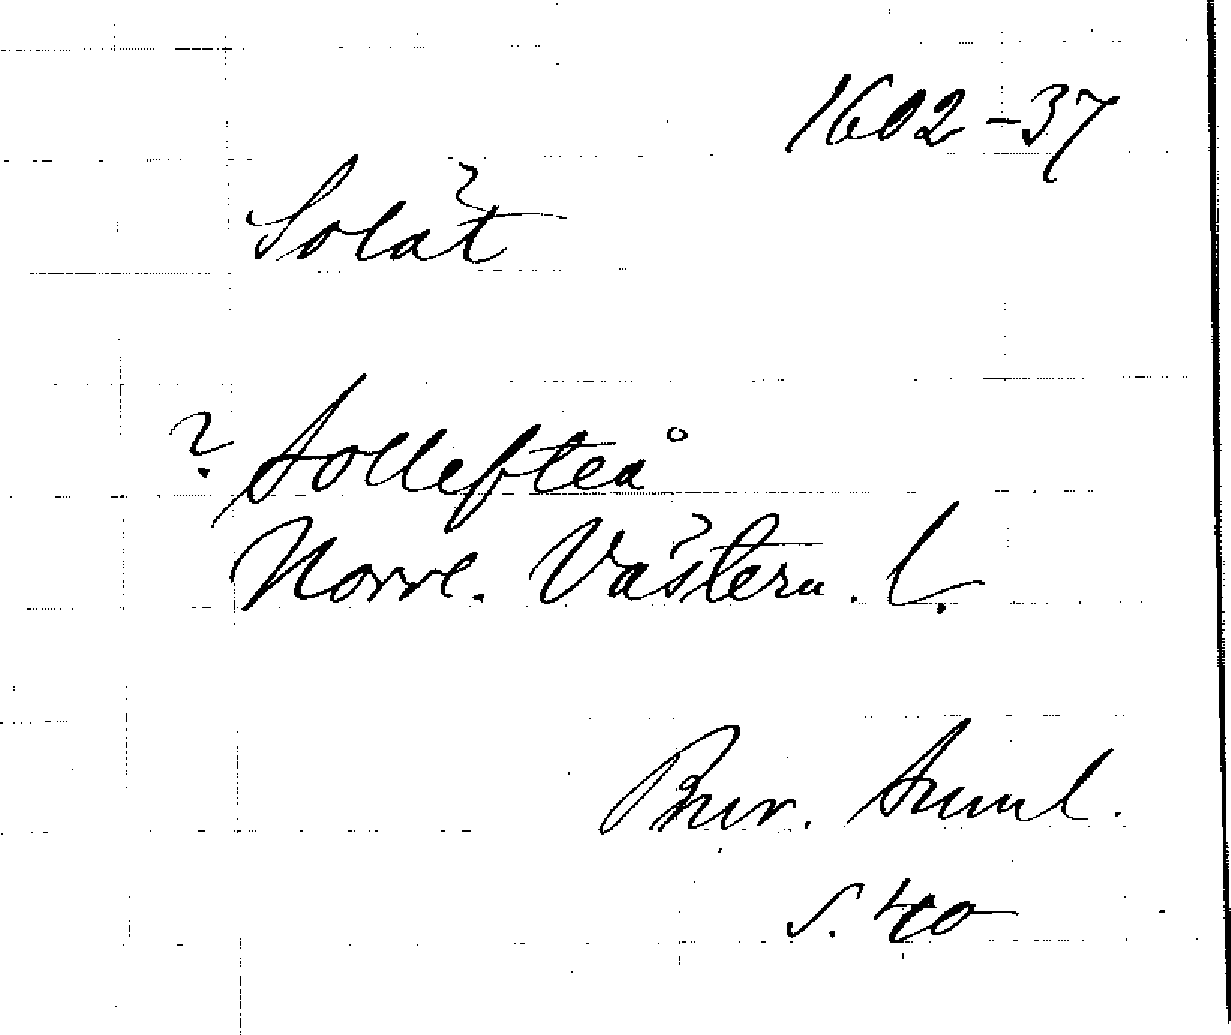 1602-37
Solåt
? Sollefteå
Norrl. Västern. l.
Bur. Saml.
s. 40